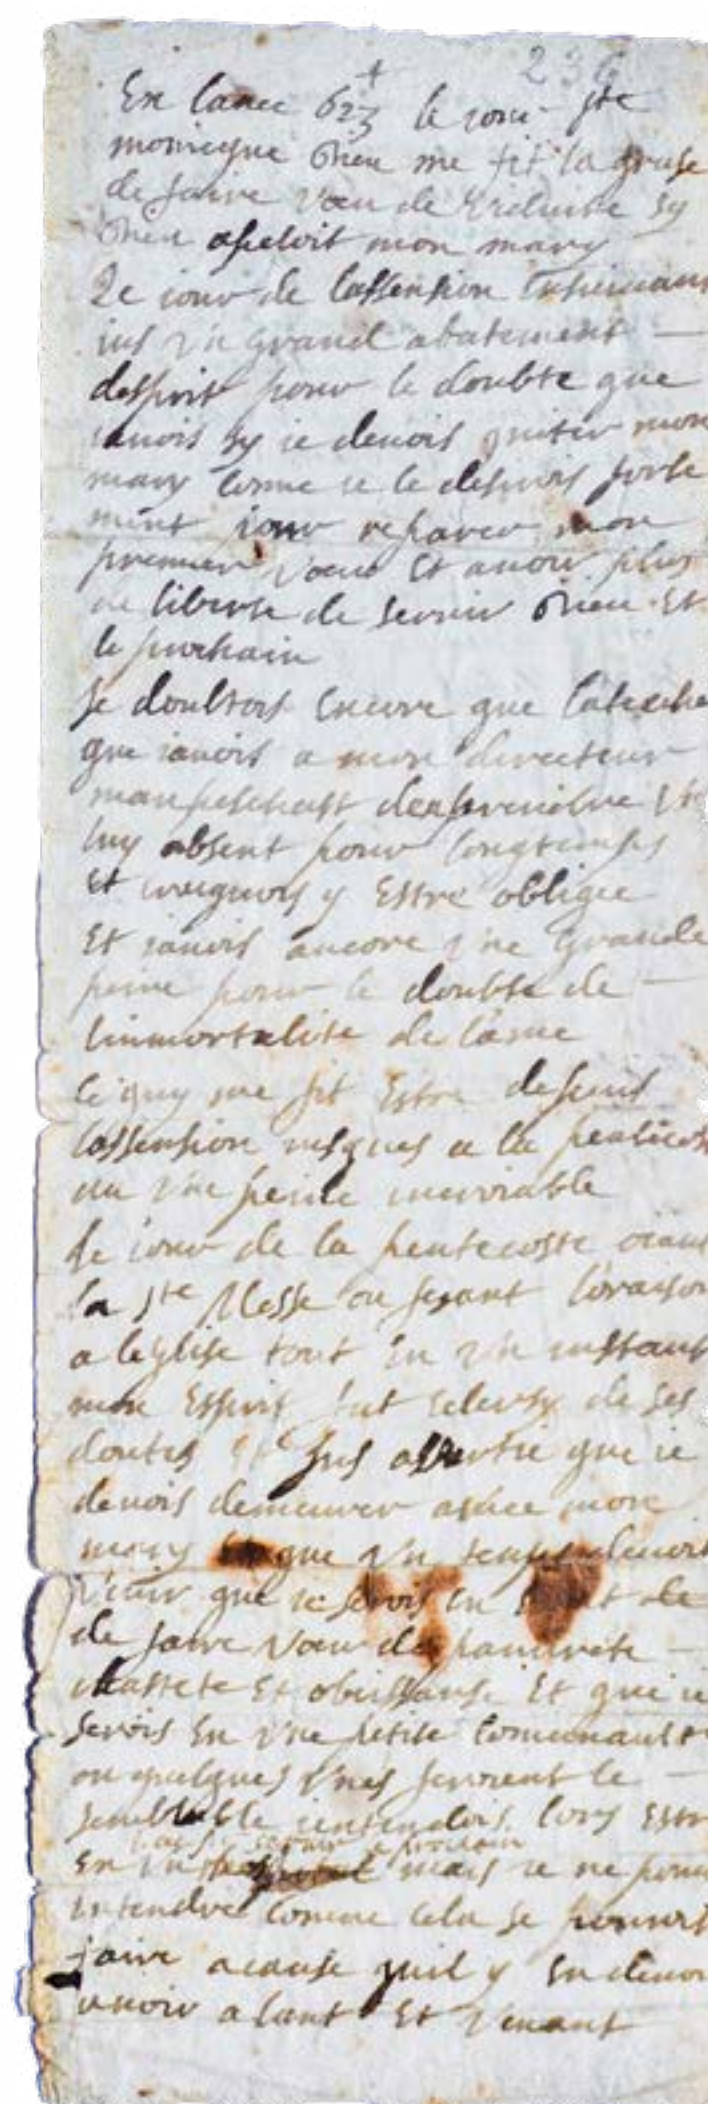 236
+
En lanee 623 le jour ste
monicque Dieu me fit la grase
de faire voeu de viduité sy
Dieu apeloit mon mary
Le jour de lassension ensuivant
jus un grand abatement
despvit pour le doubte que
javois sy je devois quiter mon
mary comme je le desirois forte
ment pour reparer mon
premier voeu Et avoir plus
de liberte de servir Dieu Et
le prochain
Je doubtois Encore que latache
que javois a mon directeur
manpeschast den prendre
luy absent pour longtemps
Et creignois y Estre obligee
Et javois ancore une grande
peine pour le doubte de
linmortalite de lame
Ce quy me fit Estre depuis
lassension jusques a la pentecoste
en une peine incroiable
Le jour de la pentecoste oiant
la ste Messe ou fesant loraison
a leglise tout En un instant
mon Esprit fut
doutes Et fus advertie que je
devois demeurer avece mon
mary Et que un temps devoit
venir que je serois en estat de
de faire voeu de pauvrete
chastete Et obeissanse Et que je
serois En une petite Comunaulte
ou quelques unes feroient le
semblable jentendois lors Estre
pour servir le prochain
En un mais je ne pouvois
entendre comme cela se pouvoit
faire a cause quil y En devoit
avoir alant Et venant